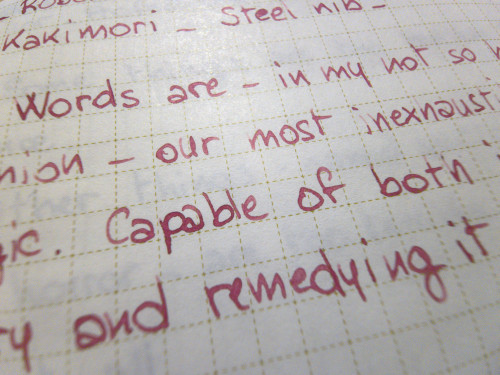 Kakimori - Steel nib -
Words are - in my not so
nion - our most inexhausti
gic. Capable of both
ry and remedying it